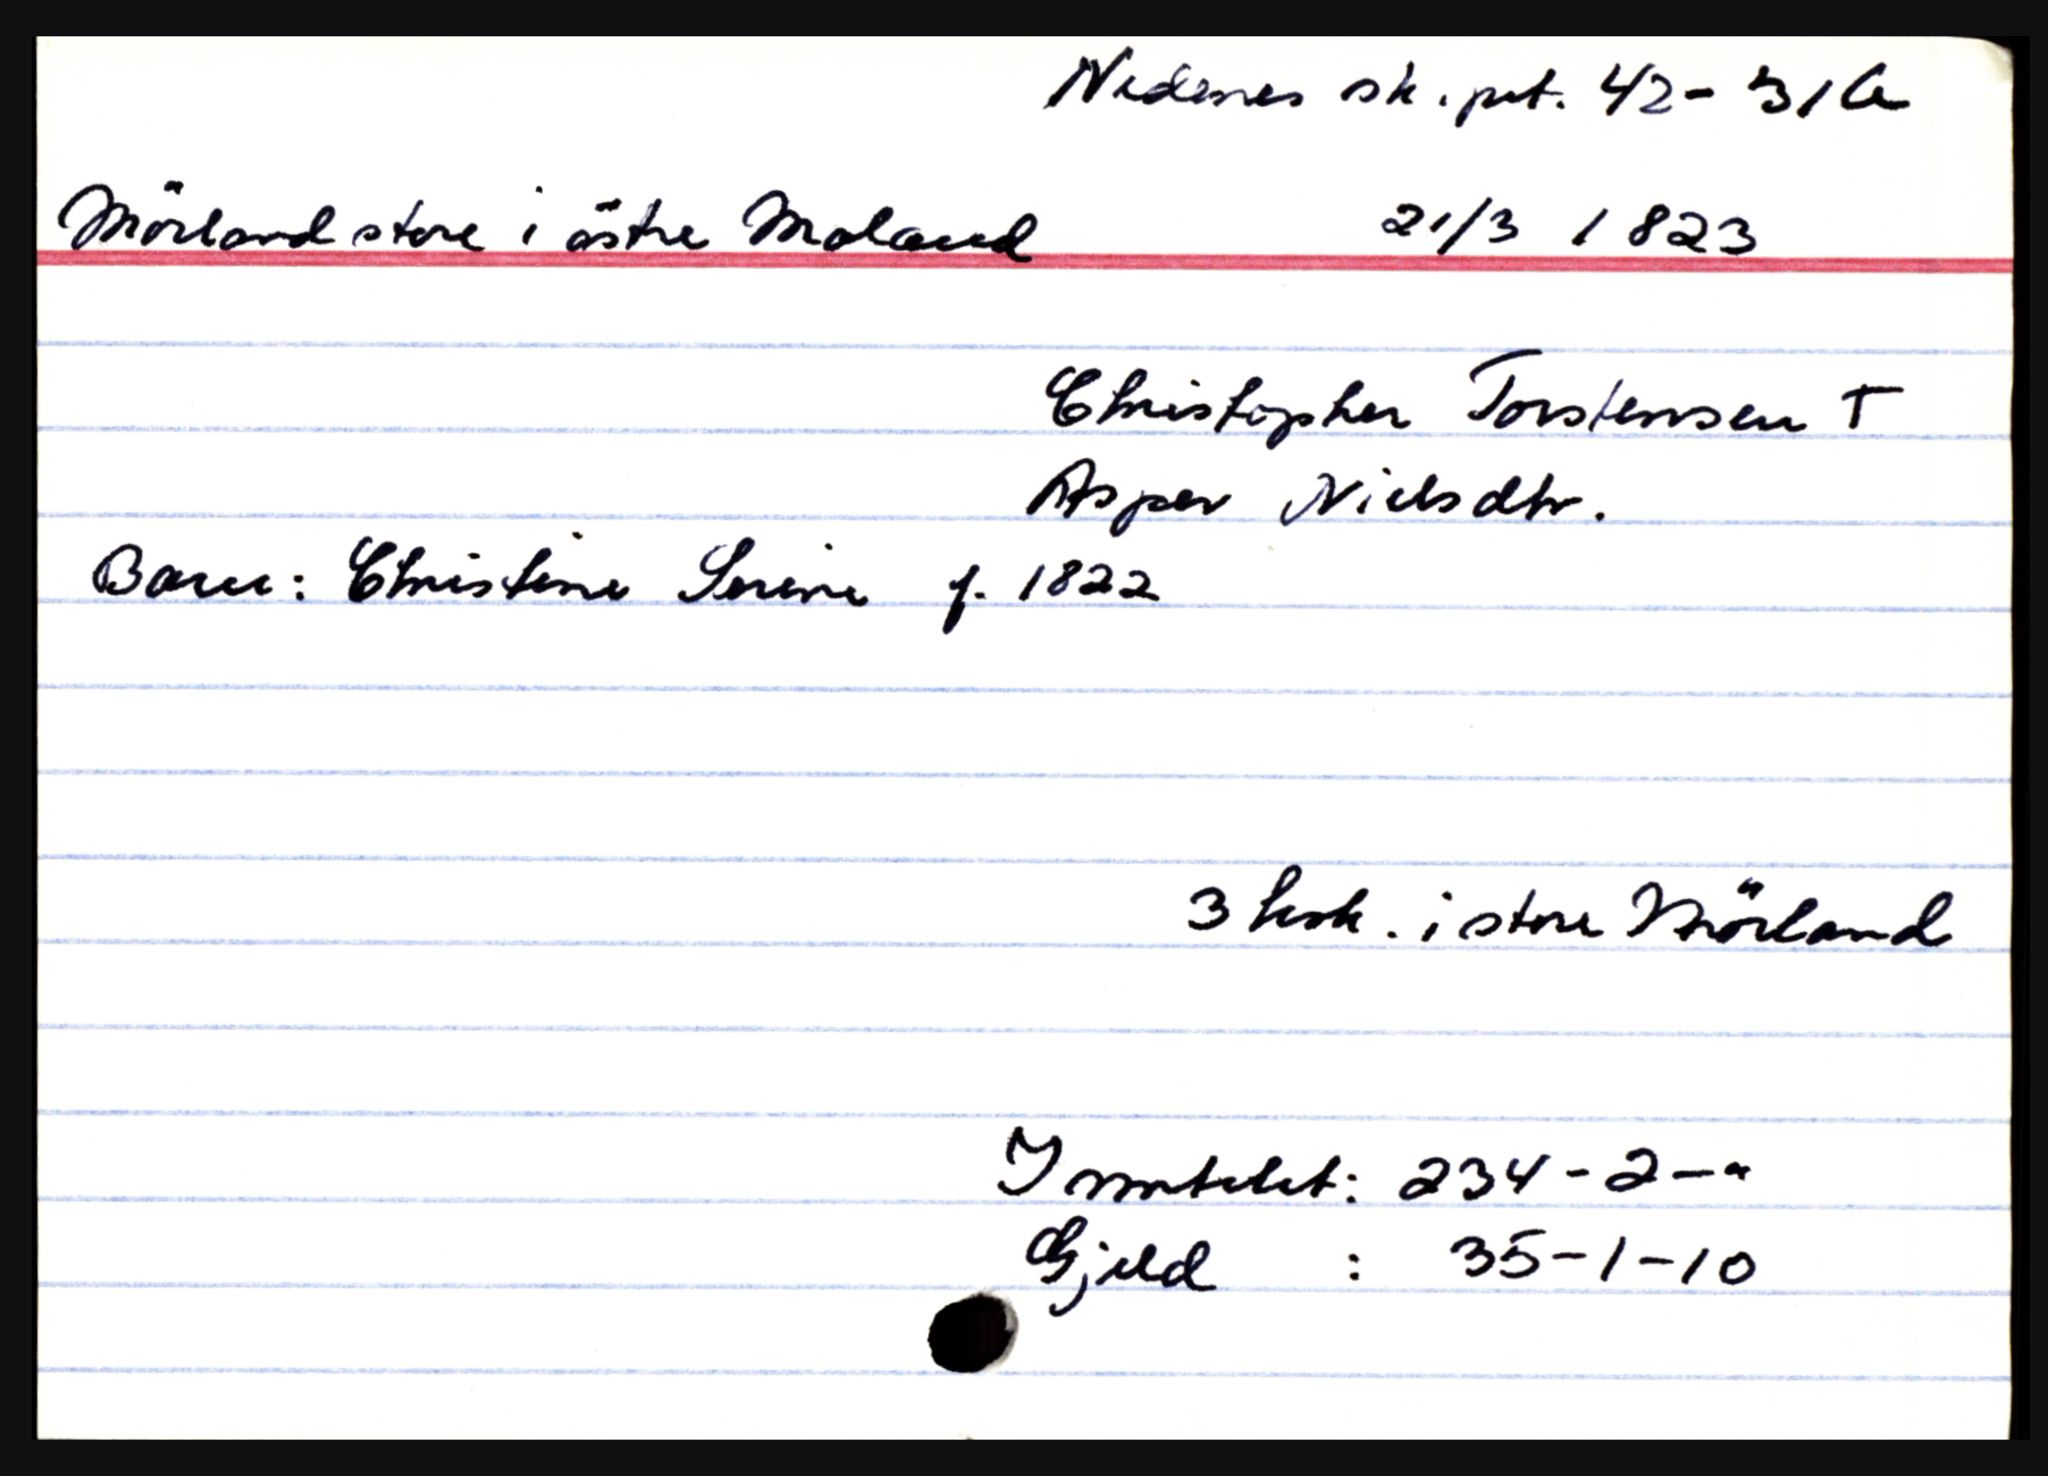 Nedenes sk. prt. 42 - 31 b
Mörland store i östre Moland 21/3 1823
Christopher Torstensen †
Asper Nielsdtr.
Barn: Christine Serine f. 1822
3 hsk. i store Mörland
Inntekt: 234 - 2 - "
Gjeld : 35 - 1 - 10